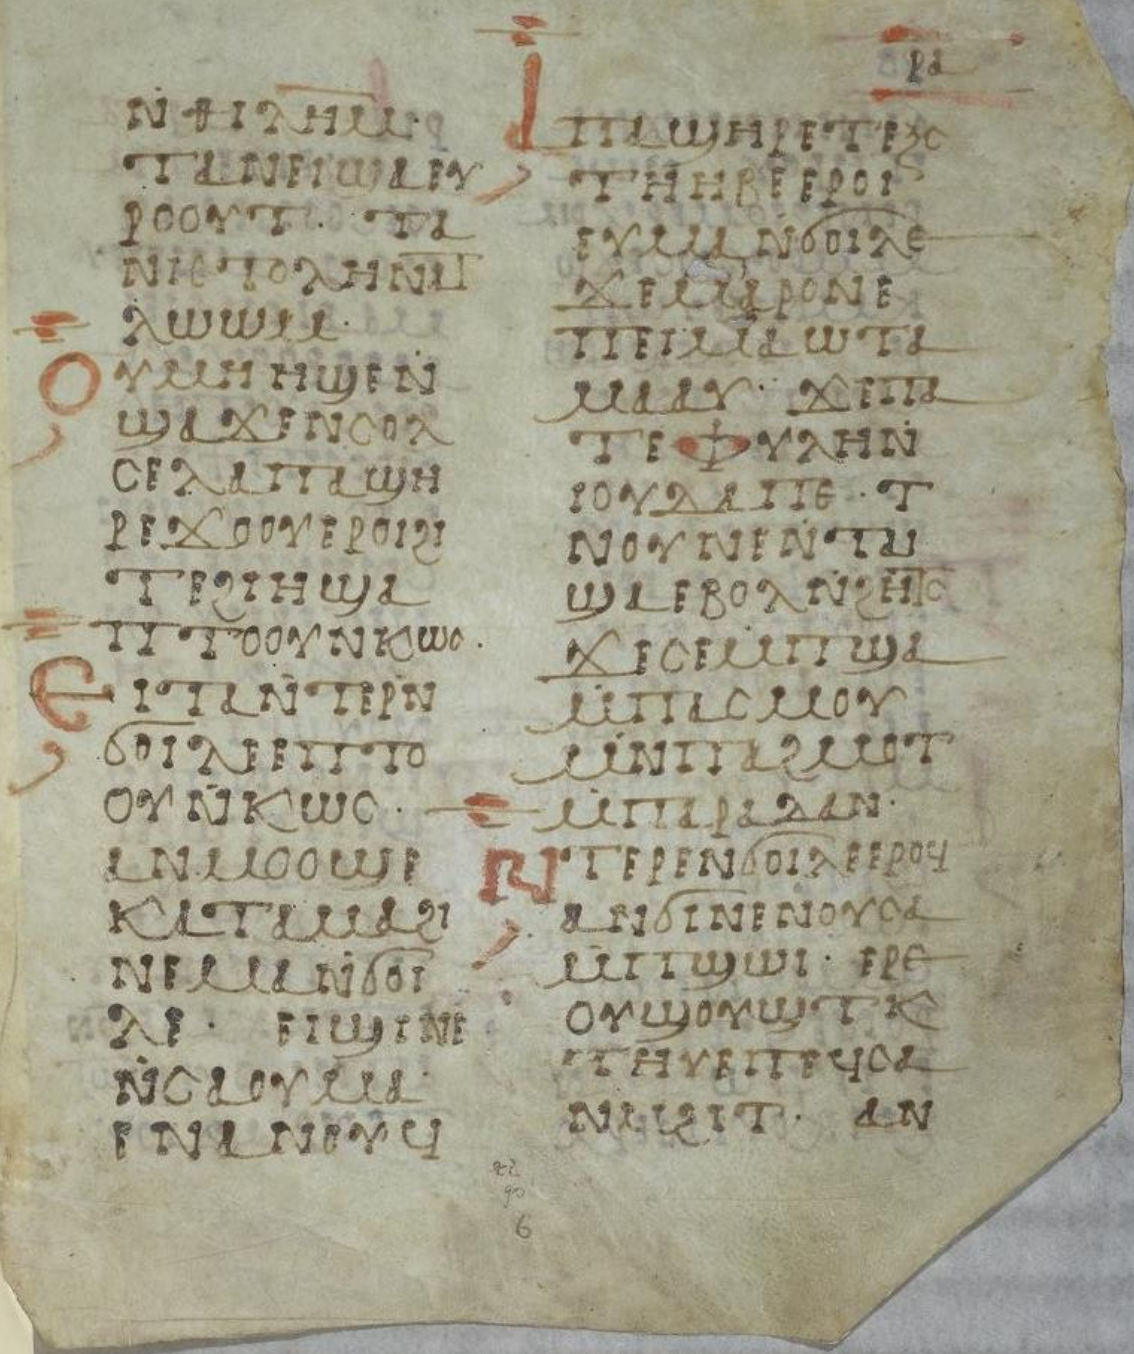 ⲣⲁ
ⲛ̇ⲑⲓⲗⲏⲙ·
ⲧⲁⲛⲉⲓϣⲁⲉⲩ
ⲣⲟⲟⲩⲧ· ⲧⲁ
ⲛⲓⲉⲧⲟⲗⲏⲛⲡ
ⲗⲱⲱⲙ·
ⲟⲩⲙⲏⲏϣⲉⲛ̇
ϣⲁϫⲉⲛⲥⲟⲗ
ⲥⲉⲗⲁⲡⲁϣⲏ
ⲣⲉϫⲟⲟⲩⲉⲣⲟⲓϩⲓ
ⲧⲉϩⲓⲏϣⲁ
ⲡⲧⲟⲟⲩⲛⲕⲱⲥ·
ⲉⲓⲧⲁⲛ̇ⲧⲉⲣⲛ
ϭⲟⲓⲗⲉⲉⲡⲧⲟ
ⲟⲩⲛ̇ⲕⲱⲥ·
ⲁⲛⲙⲟⲟϣⲉ
ⲕⲁⲧⲁⲙⲁϩⲓ
ⲛⲉⲙⲁⲛ̇ϭⲟⲓ
ⲗⲉ· ⲉⲓϣⲓⲛⲉ
ⲛ̇ⲥⲁⲟⲩⲙⲁ
ⲉⲛⲁⲛⲟⲩϥ
ⲁⲡⲁϣⲏⲣⲉⲧⲉϩⲥ
ⲧⲏⲏⲃⲉⲉⲣⲟⲓ
ⲉⲩⲙⲁⲛϭⲟⲓⲗⲉ
ϫⲉⲙⲁⲣⲟⲛⲉ
ⲡⲉⲓⲙⲁⲱⲧⲁ
ⲙⲁⲁⲩ· ϫⲉⲡⲁ
ⲧⲉⲫⲩⲗⲏⲛ̇
ⲓⲟⲩⲇⲁⲡⲉ· ⲧ
ⲛⲟⲩⲛⲉⲛ̇ⲧⲁⲓ
ϣⲁⲉⲃⲟⲗⲛ̇ϩⲏⲧⲥ
ϫⲉⲥⲉⲙⲡϣⲁ
ⲙ̇ⲡⲁⲥⲙⲟⲩ
ⲙ̇ⲛⲡⲁϩⲙⲟⲧ
ⲙ̇ⲡⲁⲣⲁⲗⲁⲛ·
ⲛ̇ⲧⲉⲣⲉⲛϭⲟⲓⲗⲉⲉⲣⲟϥ
ⲁⲛϭⲓⲛⲉⲛⲟⲩⲥⲁ
ⲙ̇ⲡϣⲱⲓ· ⲉⲣⲉ
ⲟⲩϣⲟⲩϣⲧ ⲕ
ⲧⲏⲩⲉⲡⲉϥⲥⲁ
ⲛⲁϩⲓⲧ· ⲁⲛ
22
90
6